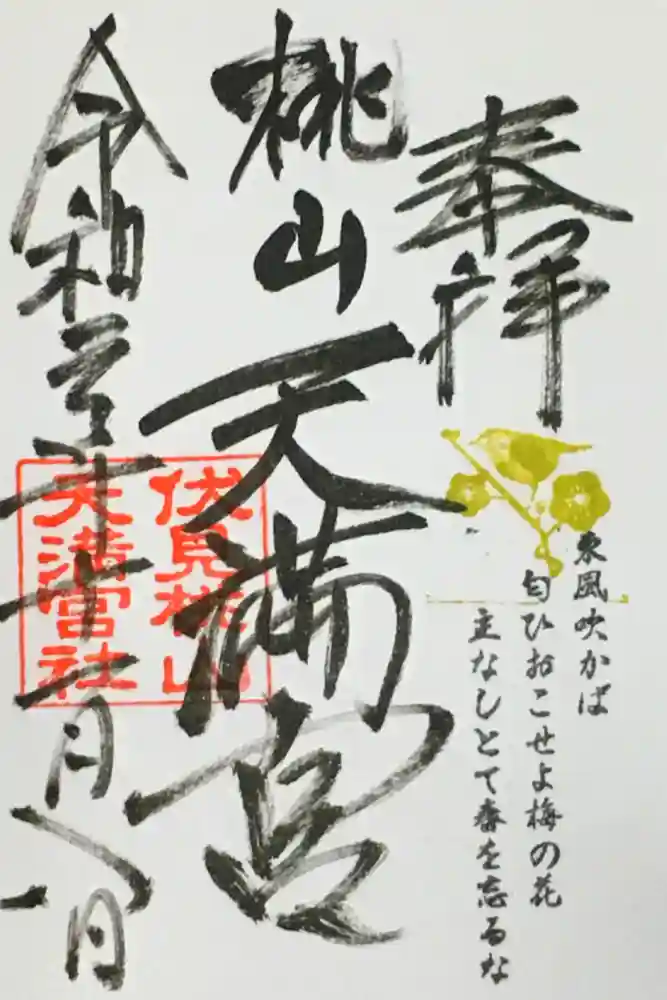 奉拝
東風吹かば
匂ひおこせよ梅の花
主なしとて春を忘るな
桃山天満宮
伏見桃山
天満宮社
令和年十月日